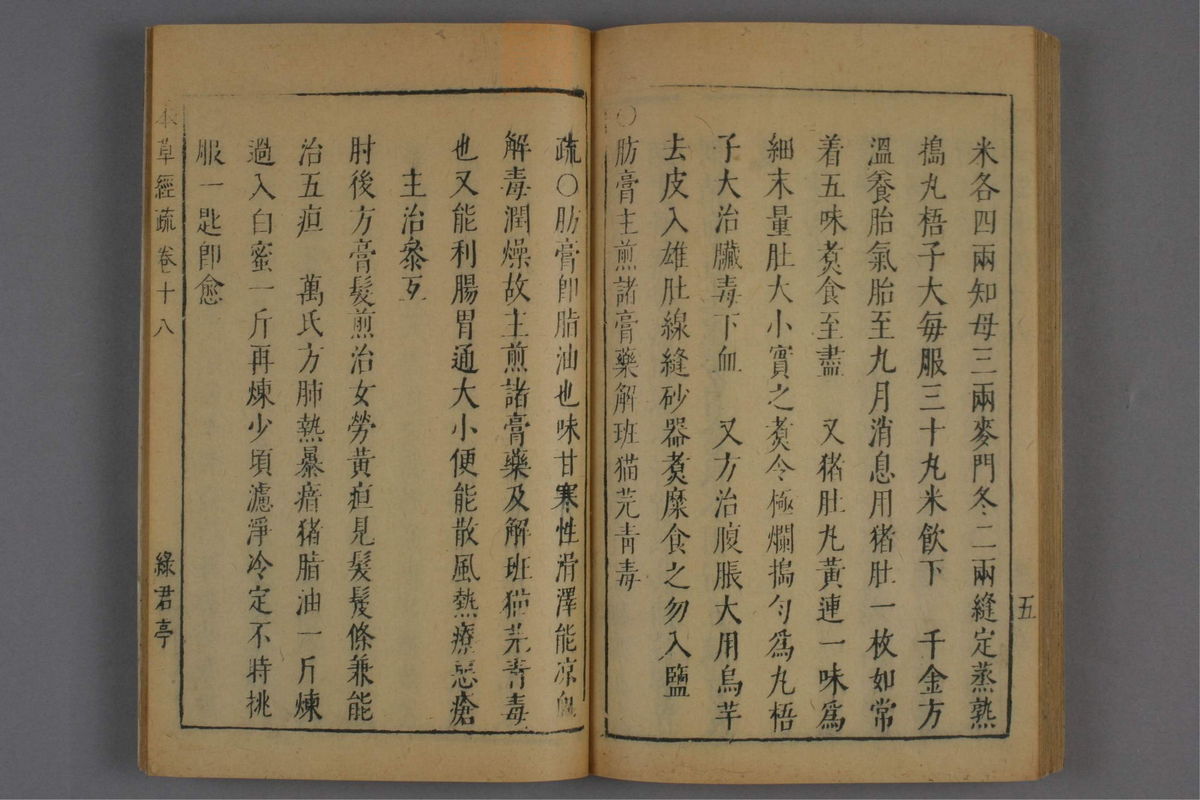 米各四兩知母三兩麥門冬二兩縫定蒸熟
搗丸梧子大每服三十丸米飲下　千金方
溫養胎氣胎至九月消息用猪肚一枚如常
着五味煑食至盡　又猪肚丸黃連一味爲
細末量肚大小實之煑令極爛搗勻爲丸梧
子大治臟毒下血　又方治腹脹大用烏芋
去皮入雄肚線縫砂器煑糜食之勿入鹽
〇肪膏主煎諸膏藥解班猫芫青毒
五
疏〇肪膏卽脂油也味甘寒性滑澤能凉血
解毒潤燥故主煎諸膏藥及解班猫芫青毒
也又能利腸胃通大小便能散風熱療惡瘡
主治叅互
肘後方膏髮煎治女勞黃疸見髮髲條兼能
治五疸　萬氏方肺熱暴瘖猪脂油一斤煉
過入白蜜一斤再煉少頃濾淨冷定不時挑
服一匙卽愈
本草經疏 卷十八 綠君亭